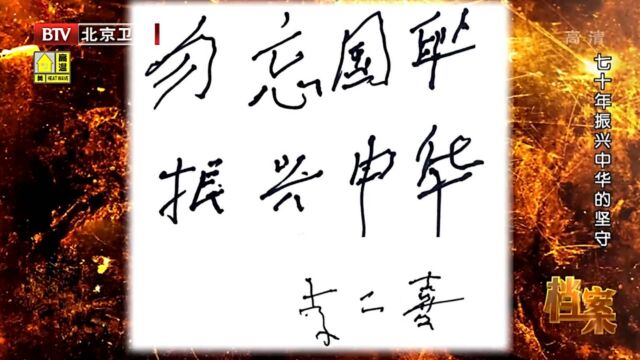 BTV 北京卫
高温
黄 HEAT WAVE
高清
勿忘国耻
振兴中华
李二喜
七十年振兴中华的坚守
档案